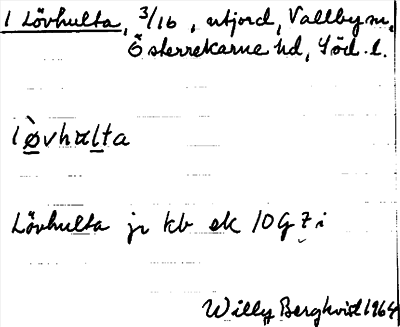 1 Lövhulta, 3/16, utjord, Vallby sn,
Österrekarne hd, Söd. l.
lø̀vhulta
Lövhulta jr kb ek 10G 7 i
Willy Bergkvist 1964